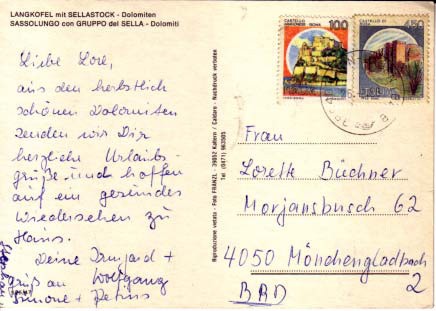 LANGKOFEL mit SELLASTOCK - Dolomiten
SASSOLUNGO con GRUPPO del SELLA - Dolomiti
Liebe Lore,
aus den herbstlich
schönen Dolomiten
senden wir Dir
herzliche Urlaubs-
grüße und hoffen
auf ein gesundes
Wiedersehen zu
Haus.
Deine Irmgard +
Wolfgang
Gruß an
Simone + Petra
Riproduzione vietata - Foto FRANZL - 39052 Kaltern / Caldaro - Nachdruck verboten
Tel (0471) 963503
100
450
ITALIA
Frau
Lorette Büchner
Morjansbusch 62
4050 Mönchengladbach
2
BRD